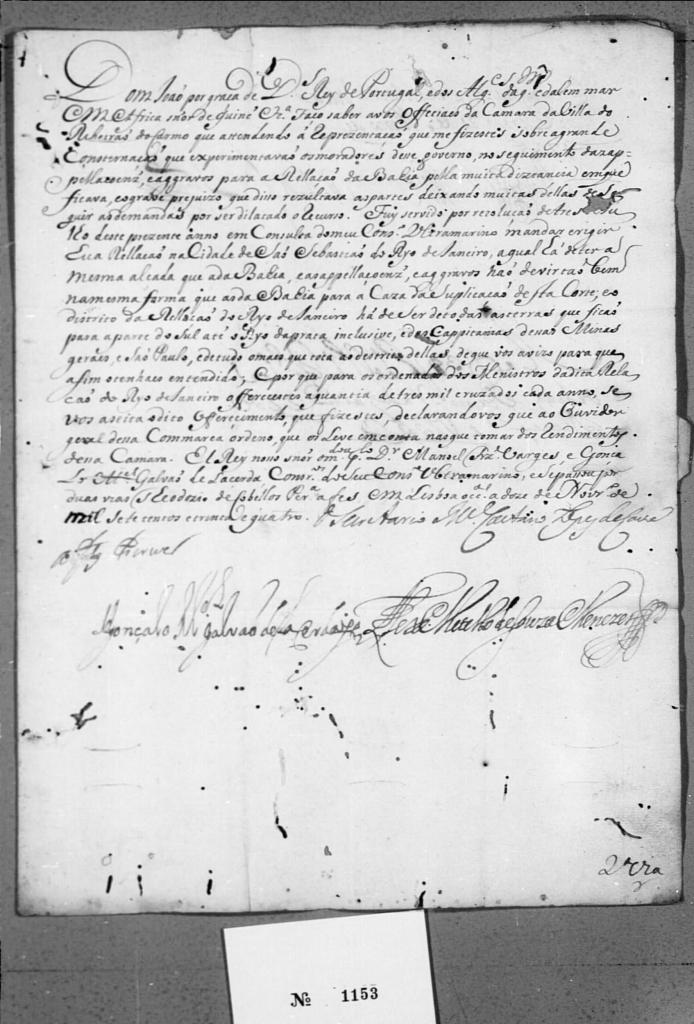 Dom Joaõ por graça de Ds. Rey de Portugal, e dos Algces. daq. e dalem mar
em Africa snõr de Guiné &a. Faço saber avos Officiaes da Camara da Villa do
Ribeiraõ do Carmo que attendendo á Reprezentaçaõ que me fizestes sobre a grande
Consternaçaõ que experimentavaõ os moradores deve governo, no seguimento das ap-
pellaçoenz, e aggravos para a Rellaçaõ da Bahia pella muita distancia em que
ficava, e o grave prejuizo que disso rezultava as partes deixando muitas dellas de se-
guir as demandas por ser dilatado o recurso. Fuy servido por rezoluçaõ de tres
deste prezente anno em Consulta do meu Conso. Ultramarino mandar erigir
Rellaçaõ na Cidade de Saõ Sebastiaõ do Ryo de Janeiro, a qual há de ter a
mesma alçada que a da Bahia, e as appellaçoenz, e aggravos haõ de vir
na mesma forma que as da Bahia para á Caza da Suplicaçaõ desta Corte; e o
districto da Rellaçaõ do Ryo de Janeiro há de ser de todas as terras que ficaõ
para a parte do Sul até o Ryo da prata inclusive, e das Cappitanias dessas Minas
geráes, e Saõ Paulo, e de tudo o mais que toca ao destricto dellas, de que vos avizo para que
asim o tenhaes entendido; E por que para os ordenados dos Ministros da dita Rela-
çaõ do Ryo de Janeiro offerecestes a quantia de tres mil cruzados cada anno, se
vos aseita o dito Offerecimento, que fizestes, declarandovos que ao Ouvidor
geral dessa Commarca ordeno, que os Leve em conta nas que tomar dos Rendimentos
dessa Camara. El Rey nosso snõr o mandou pello Dr. Manoel Frz. Varges, e Gonça
lo Mel. Galvaõ de Lacerda Consros. do Seu Conso. Ultramarino, e se passou por
duas vias Theodozio de Cobellos Pera. a fes, em Lixboa occal. a doze de Novro. de
mil sete centos e trinta e quatro. O Secretario Mel. Caetano Lopes de Lavre
a fez escrever
Gonçalo Mel. Galvaõ de Lacerda
de Souza Menezes
2ª via
Nº 1153